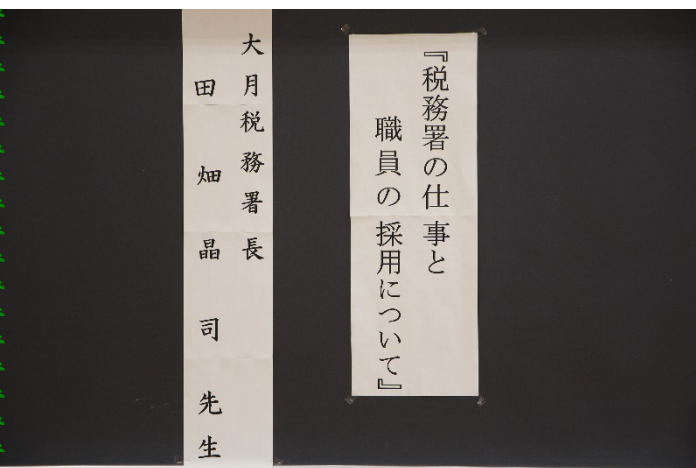 『税務署の仕事と
職員の採用について』
大月税務署長
田畑晶司先生